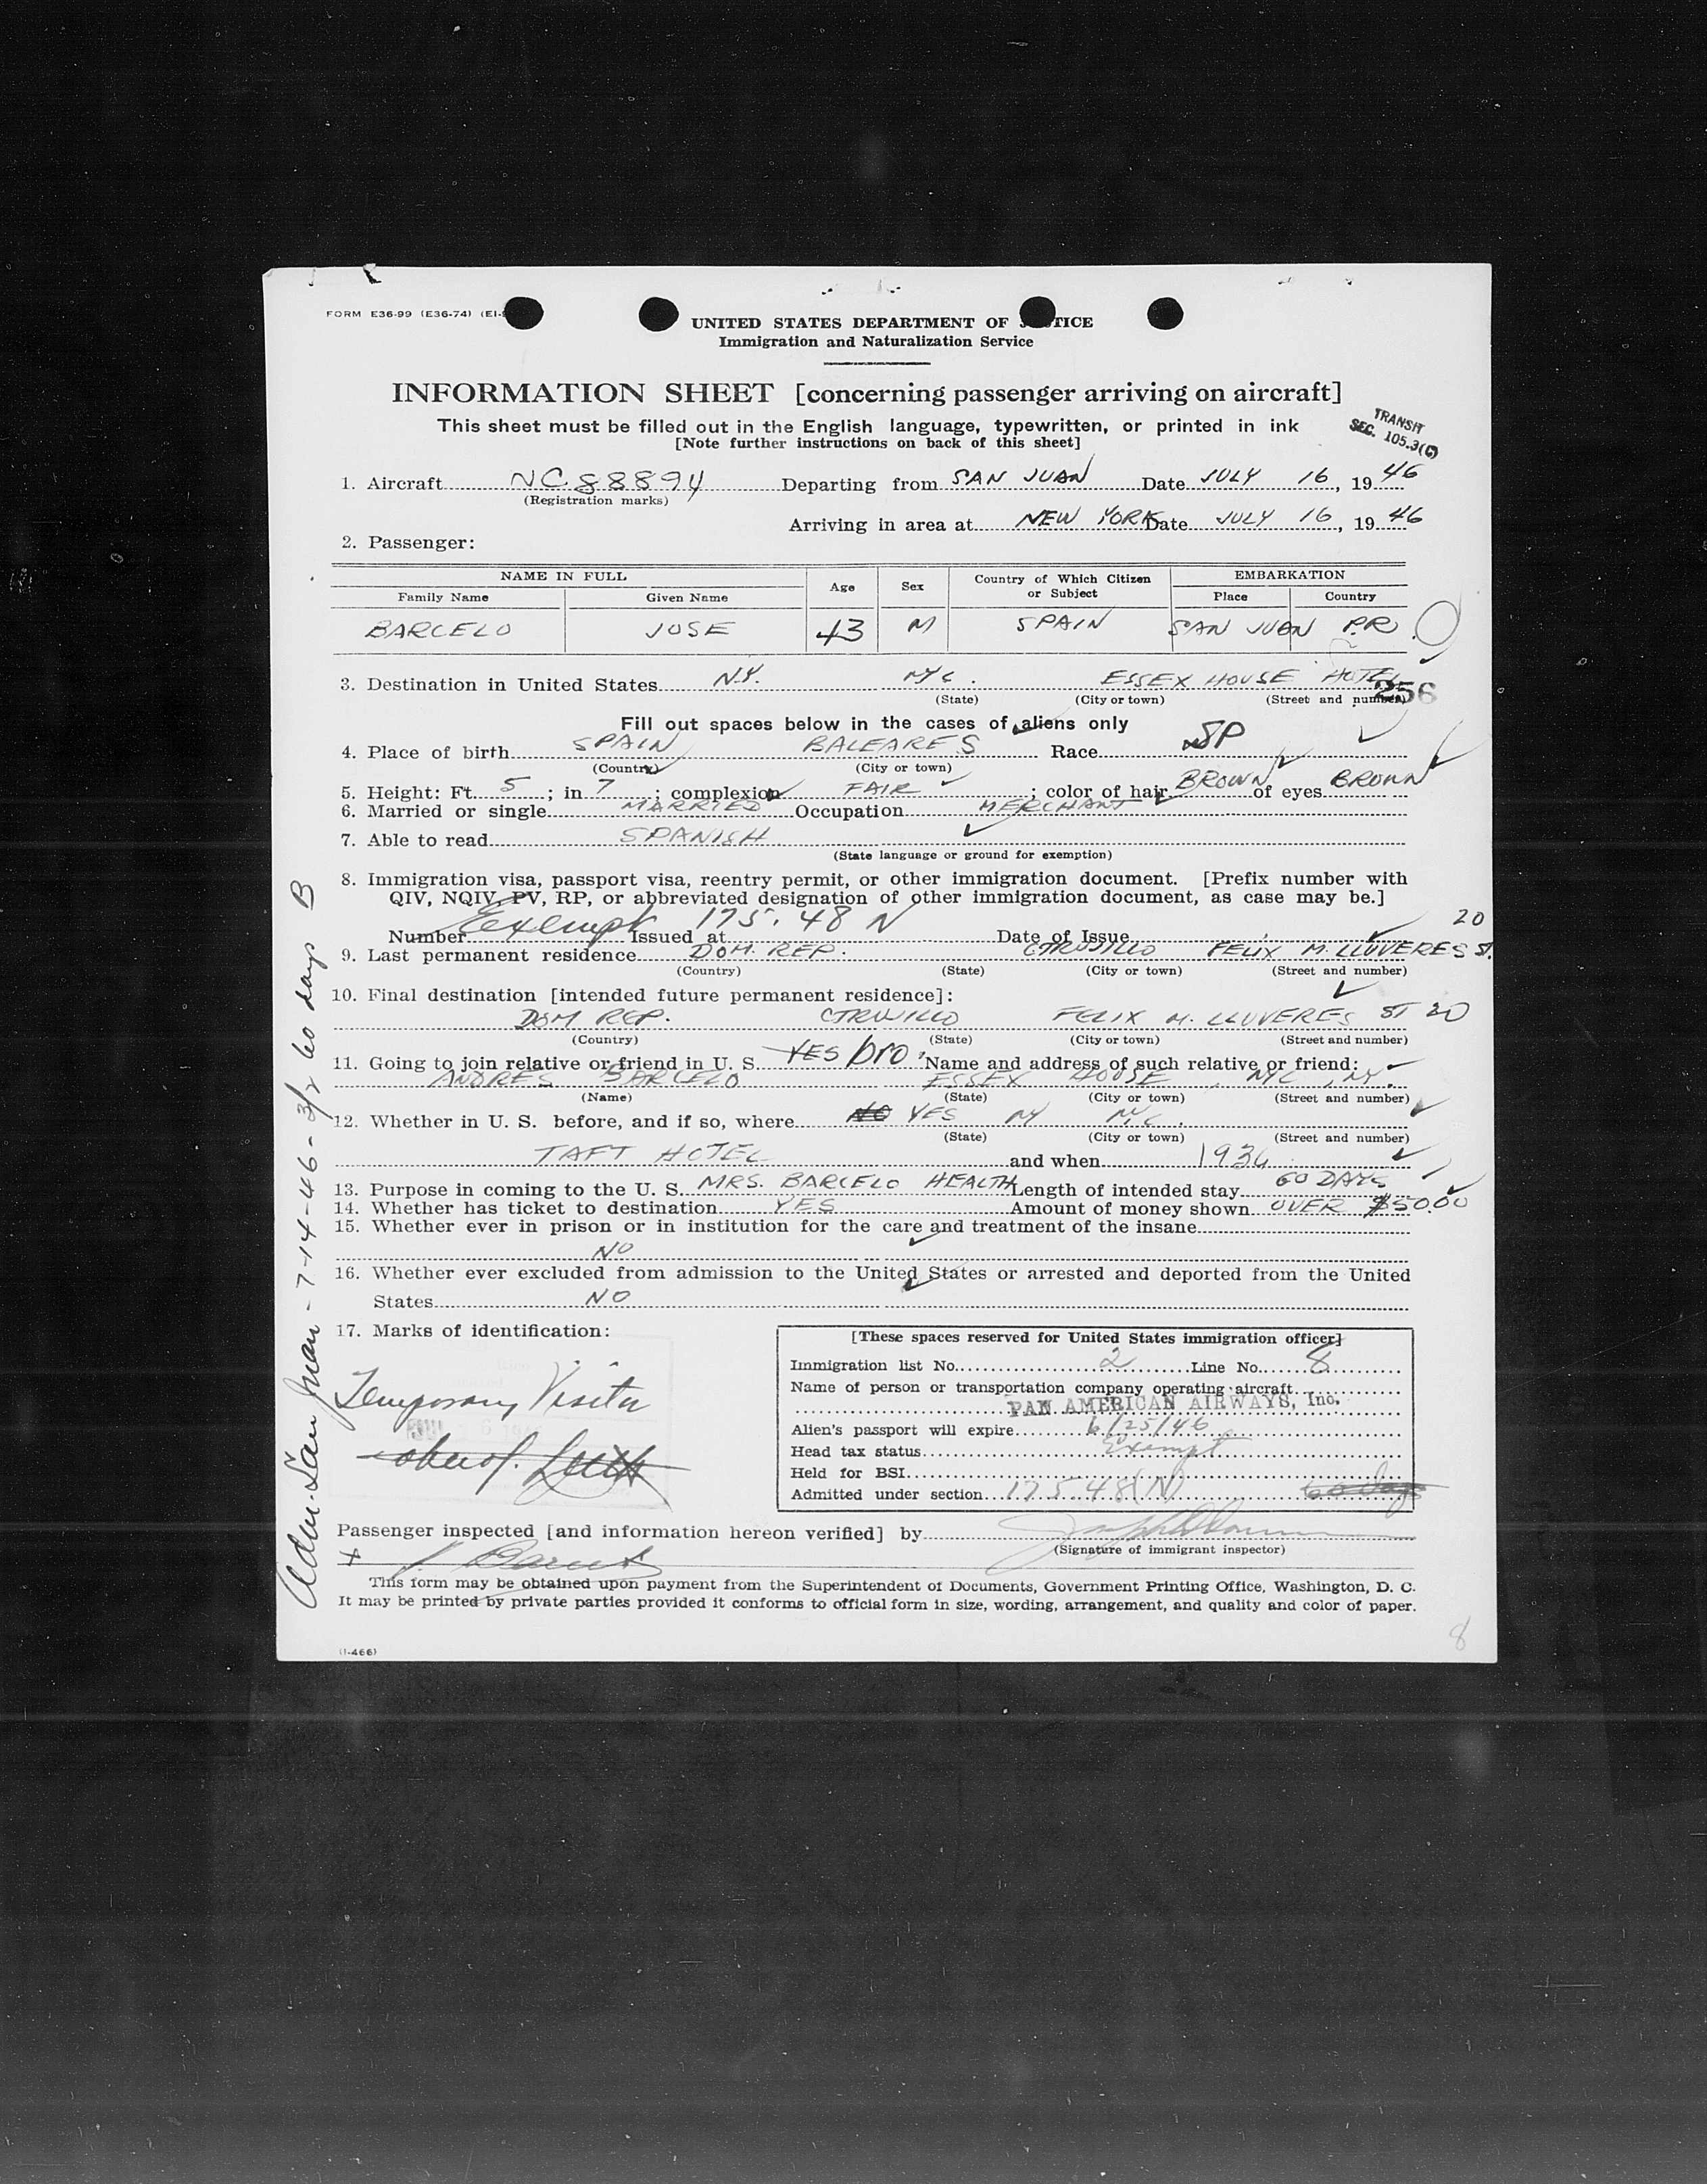 FORM E36-99 (E36-74) (EI-
UNITED STATES DEPARTMENT OF JUSTICE
Immigration and Naturalization Service
INFORMATION SHEET [concerning passenger arriving on aircraft]
This sheet must be filled out in the English language, typewritten, or printed in ink
[Note further instructions on back of this sheet]
TRANSIT
SEC. 105.3(G)
1. Aircraft NC88894 Departing from SAN JUAN Date JULY 16, 1946
(Registration marks)
Arriving in area at NEW YORK Date JULY 16, 1946
2. Passenger:
NAME IN FULL Age Sex Country of Which Citizen or Subject EMBARKATION
Family Name Given Name Place Country
BARCELO JOSE 43 M SPAIN SAN JUAN P.R.
3. Destination in United States N.Y. NYC. ESSEX HOUSE HOTEL
(State) (City or town) (Street and number)
256
Fill out spaces below in the cases of aliens only
4. Place of birth SPAIN BALEARES Race SP
(Country) (City or town)
5. Height: Ft. 5; in 7; complexion FAIR; color of hair BROWN of eyes BROWN
6. Married or single MARRIED Occupation MERCHANT
7. Able to read SPANISH
(State language or ground for exemption)
8. Immigration visa, passport visa, reentry permit, or other immigration document. [Prefix number with
QIV, NQIV, PV, RP, or abbreviated designation of other immigration document, as case may be.]
Number Exempt 175.48 N Issued at Date of Issue
20
9. Last permanent residence DOM. REP. CTRUJILLO FELIX M. LLUVERES St.
(Country) (State) (City or town) (Street and number)
10. Final destination [intended future permanent residence]:
DOM REP. CTRUJILLO FELIX M. LLUVERES ST 20
(Country) (State) (City or town) (Street and number)
11. Going to join relative or friend in U. S. YES bro. Name and address of such relative or friend:
ANDRES BARCELO ESSEX HOUSE, NYC, NY.
(Name) (State) (City or town) (Street and number)
12. Whether in U. S. before, and if so, where NO YES NY NYC.
(State) (City or town) (Street and number)
TAFT HOTEL and when 1936
13. Purpose in coming to the U. S. MRS. BARCELO HEALTH Length of intended stay 60 DAYS
14. Whether has ticket to destination YES Amount of money shown OVER $50.00
15. Whether ever in prison or in institution for the care and treatment of the insane
NO
16. Whether ever excluded from admission to the United States or arrested and deported from the United
States NO
17. Marks of identification:
Temporary Visitor
[These spaces reserved for United States immigration officer]
Immigration list No. 2 Line No. 8
Name of person or transportation company operating aircraft
PAN AMERICAN AIRWAYS, Inc.
Alien's passport will expire 6/25/46
Head tax status Exempt
Held for BSI
Admitted under section 175.48(N) 60 days
Passenger inspected [and information hereon verified] by
(Signature of immigrant inspector)
This form may be obtained upon payment from the Superintendent of Documents, Government Printing Office, Washington, D. C.
It may be printed by private parties provided it conforms to official form in size, wording, arrangement, and quality and color of paper.
(I-466)
8
Adm. San Juan - 7-14-46 - 3/2 60 days B